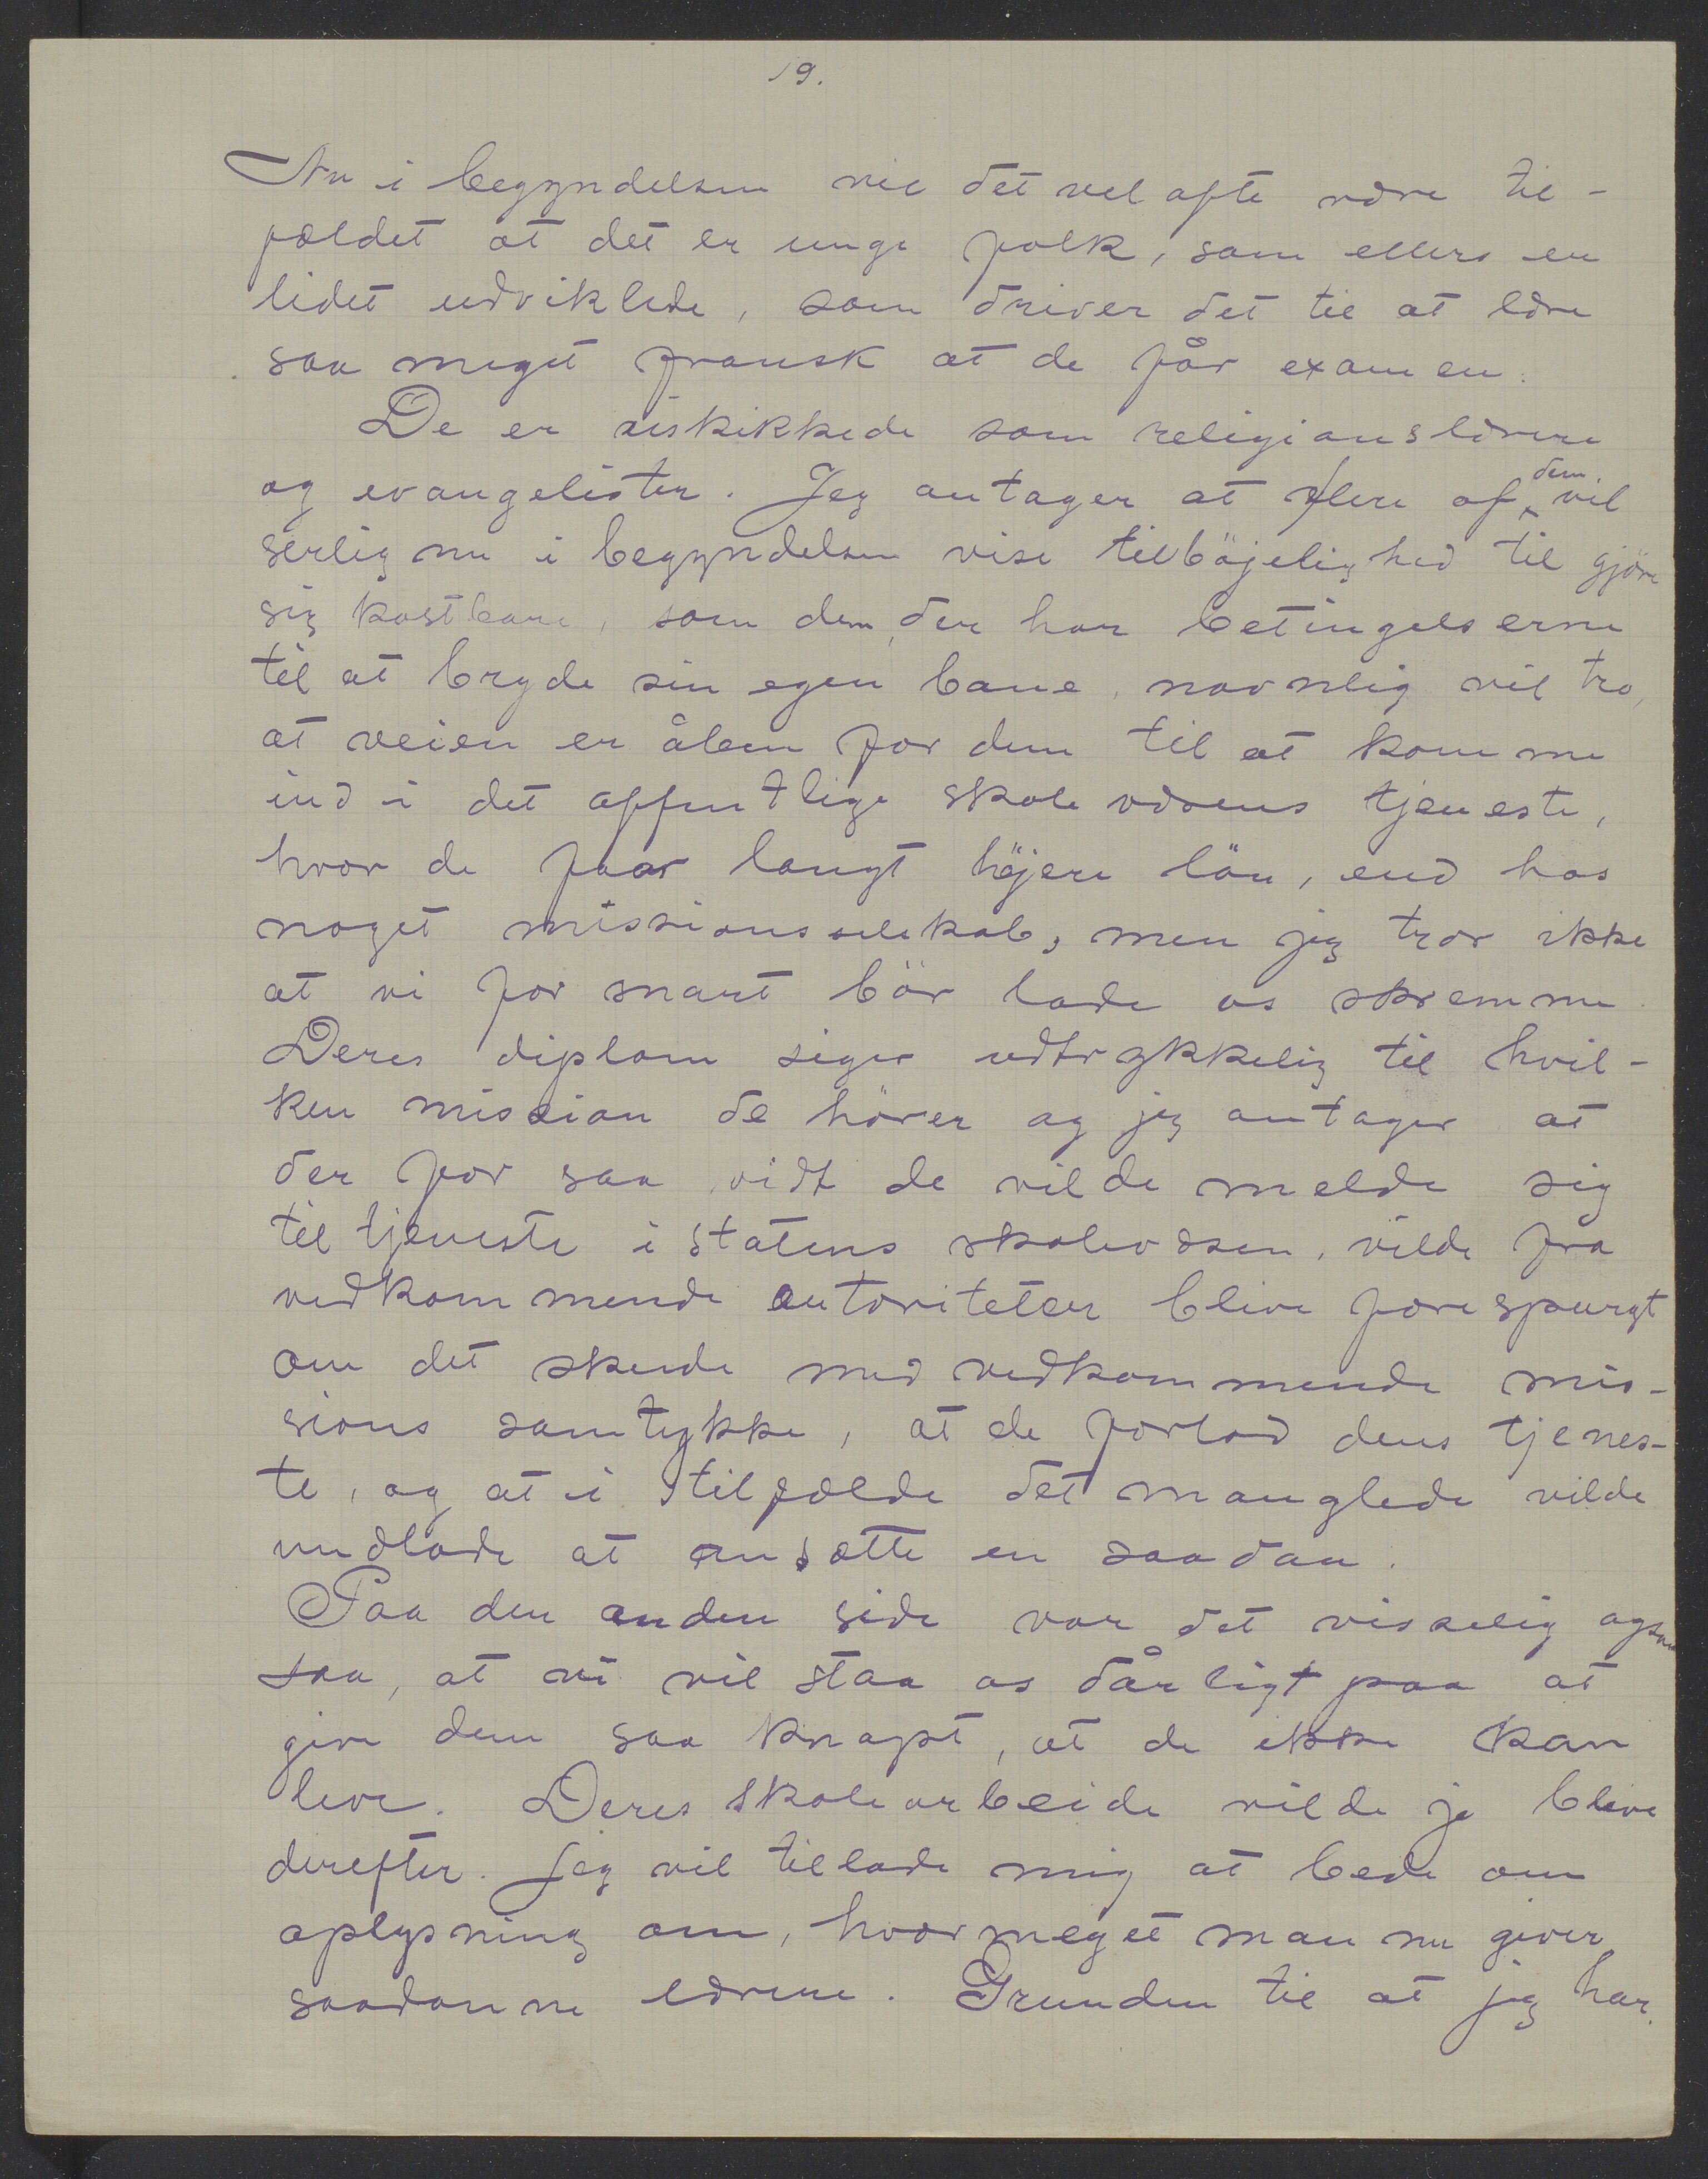 19.
Nu i begyndelsen vil det vel ofte være til-
fældet at det er unge folk, som ellers er
lidet udviklede, som driver det til at lære
saa meget fransk at de får examen.
De er uskikkede som religionslærere
og evangelister. Jeg antager at flere af dem vil
serlig nu i begyndelsen vise tilböjelighed til gjöre
sig kostbare, som dem, der har betingelserne
til at bryde sin egen bane, navnlig vil tro,
at veien er åben for dem til at komme
ind i det offentlige skolevæsens tjeneste,
hvor de faar langt höjere lön, end hos
noget missionsselskab, men jeg tror ikke
at vi for snart bör lade os skremme.
Deres diplom siger udtrykkelig til hvil-
ken mission de hörer og jeg antager at
der for saa vidt de vilde melde sig
til tjeneste i statens skolevæsen, vilde fra
vedkommende autoriteter blive forespurgt
om det skende med vedkommende mis-
sions samtykke, at de forlod dens tjenes-
te, og at i tilfælde det manglede vilde
undlade at ansætte en saadan.
Paa den anden side var det visselig ogsaa
saa, at vi vil staa os dårligt paa at
give dem saa knapt, at de ikke kan
leve. Deres skolearbeide vilde jo blive
derefter. Jeg vil tillade mig at bede om
oplysning om, hvor meget man nu giver
saadanne lærere. Grunden til at jeg har